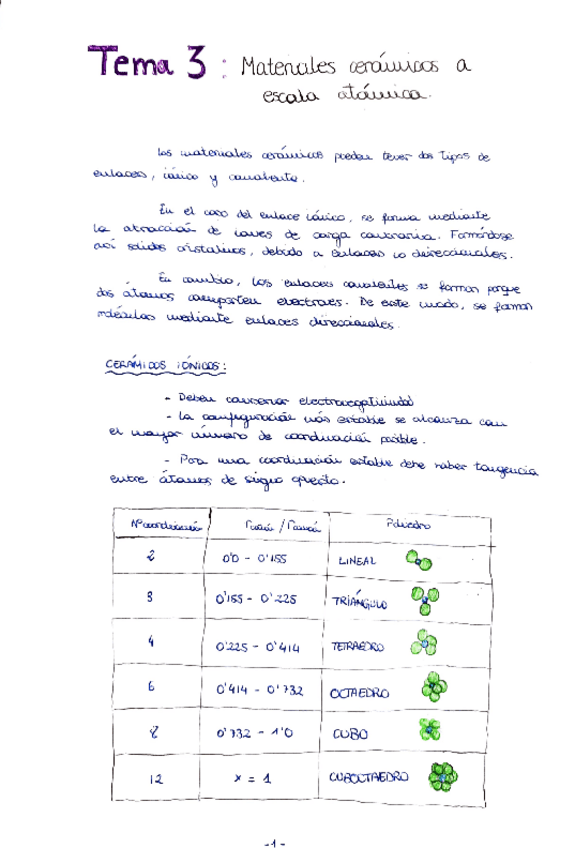 Tema 3 : Materiales cerámicos a
escala atómica.
Los materiales cerámicos pueden tener dos tipos de
enlaces, iónico y covalente.
En el caso del enlace iónico, se forma mediante
la atracción de iones de carga contraria. Formándose
así sólidos cristalinos, debido a enlaces no direccionales.
En cambio, los enlaces covalentes se forman porque
dos átomos comparten electrones. De este modo, se forman
moléculas mediante enlaces direccionales.
CERÁMICOS IÓNICOS:
- Deben conservar electronegatividad
- La configuración más estable se alcanza con
el mayor número de coordinación posible.
- Para una coordinación estable debe haber tangencia
entre átomos de signo opuesto.
Nº coordinación rcatión / ranión Poliedro
2 0'0 - 0'155 LINEAL
3 0'155 - 0'225 TRIÁNGULO
4 0'225 - 0'414 TETRAEDRO
6 0'414 - 0'732 OCTAEDRO
8 0'732 - 1'0 CUBO
12 x = 1 CUBOCTAEDRO
-1-